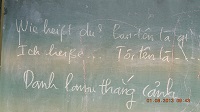 Wie heißt du? Bạn tên là gì?
Ich heiße... Tôi tên là ...
Danh lam thắng cảnh
01.08.2013 08: